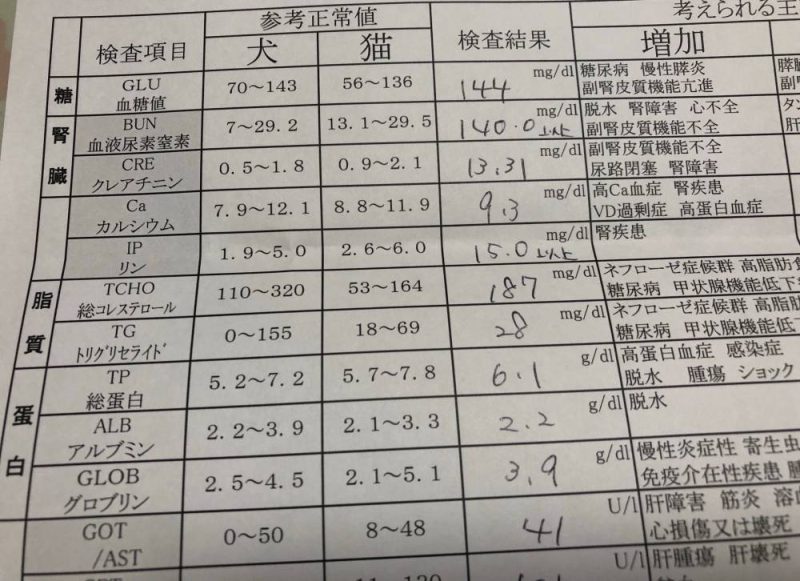 参考正常値 考えられる主
検査項目 犬 猫 検査結果 増加
糖 GLU 血糖値 70～143 56～136 144 mg/dl 糖尿病 慢性膵炎
副腎皮質機能亢進
腎臓 BUN 血液尿素窒素 7～29.2 13.1～29.5 140.0以上 mg/dl 脱水 腎障害 心不全
副腎皮質機能不全
CRE クレアチニン 0.5～1.8 0.9～2.1 13.31 mg/dl 副腎皮質機能不全
尿路閉塞 腎障害
Ca カルシウム 7.9～12.1 8.8～11.9 9.3 mg/dl 高Ca血症 腎疾患
VD過剰症 高蛋白血症
IP リン 1.9～5.0 2.6～6.0 15.0以上 mg/dl 腎疾患
脂質 TCHO 総コレステロール 110～320 53～164 187 mg/dl ネフローゼ症候群 高脂肪食
糖尿病 甲状腺機能低下
TG トリグリセライド 0～155 18～69 28 mg/dl ネフローゼ症候群 高脂肪
糖尿病 甲状腺機能低下
蛋白 TP 総蛋白 5.2～7.2 5.7～7.8 6.1 g/dl 高蛋白血症 感染症
脱水 腫瘍 ショック
ALB アルブミン 2.2～3.9 2.1～3.3 2.2 g/dl 脱水
GLOB グロブリン 2.5～4.5 2.1～5.1 3.9 g/dl 慢性炎症性 寄生虫
免疫介在性疾患 腫
GOT /AST 0～50 8～48 41 U/l 肝障害 筋炎 溶血
心損傷又は壊死
U/l 肝腫瘍 肝壊死